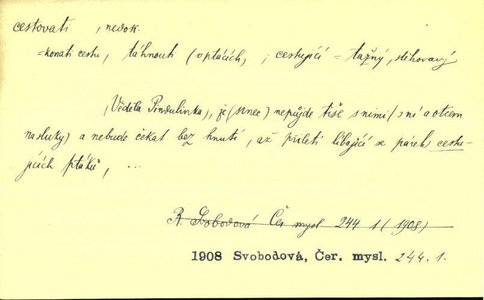 cestovati , nedok.
= konati cestu, táhnouti (o ptácích), ; cestující = tažný, stěhovavý
(Věděla Pindulinka), že (strnec) nepůjde tiše s nimi / s ní a otcem
na sluky) a nebude čekat bez hnutí, až přiletí líbající se párek cestu-
jících ptáků, ...
R. Svobodová Čer mysl 244 1 (1908)
1908 Svobodová, Čer. mysl. 244. 1.